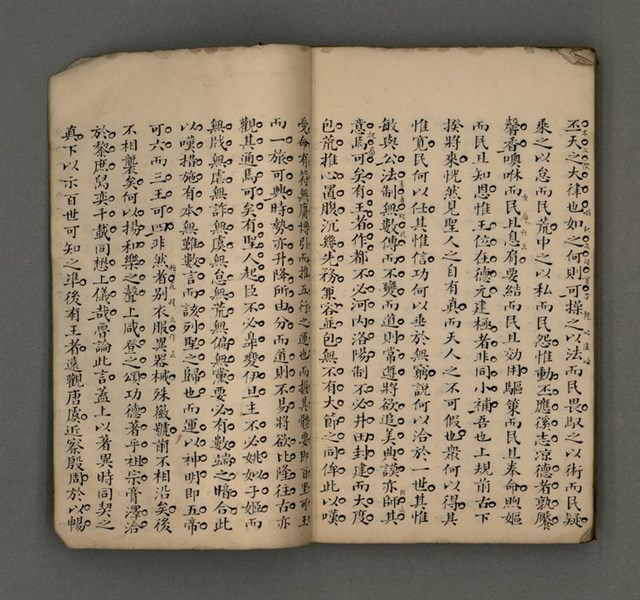 丕天之大律也如之何則可操之以法而民畏馭之以術而民疑
乘之以怠而民荒中之以私而民怨惟動丕應徯志凉德者孰懕
馨香噢咻而民且息有要結而民且効用驅策而民且奉命煦嫗
而民且知恩惟王位在德元建極者非同小補吾也上規前古下
揆將來恍然見聖人之自有真而天人之不可假也衆何以得其
惟寛民何以任其惟信功何以垂於無窮說何以洽於一世其惟
敏與公法制無數傳而不變而道則常遵將欲追美典謨亦師其
意焉可矣有王者作都不必河内洛陽制不必井田封建而大度
包荒推心置腹沉幾先務兼容並包無不有大節之同侔此以嘆
受命有符無庸博引而推五行之運也而握其體要即百里可王
而一旅可興時勢亦升降所由分而道則不易將欲比隆往古亦
觀其通焉可矣有聖人起臣不必皐夔伊旦主不必姚姒子姬而
無戲無虛無詐無虞無怠無荒無偏無黨要必有數端之暗合此
以嘆措施有本無難數言而該列聖之歸也而運以神明即五帝
可六而三王可四非然者别衣服異器械殊徽號前不相沿矣後
不相襲矣何以揚和樂之聲上咸登之頌功德著乎祖宗膏澤洽
於黎庶曷奕千載同想上儀哉嘗論此言蓋上以著異時同契之
真下以示百世可知之準後有王者遠觀唐虞近察殷周於以暢